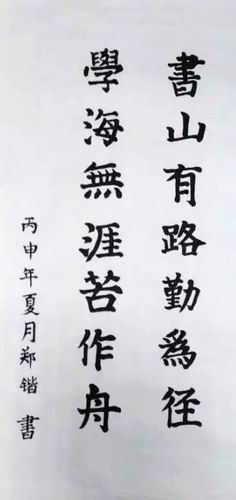 書山有路勤為径
學海無涯苦作舟
丙申年夏月郑锴書